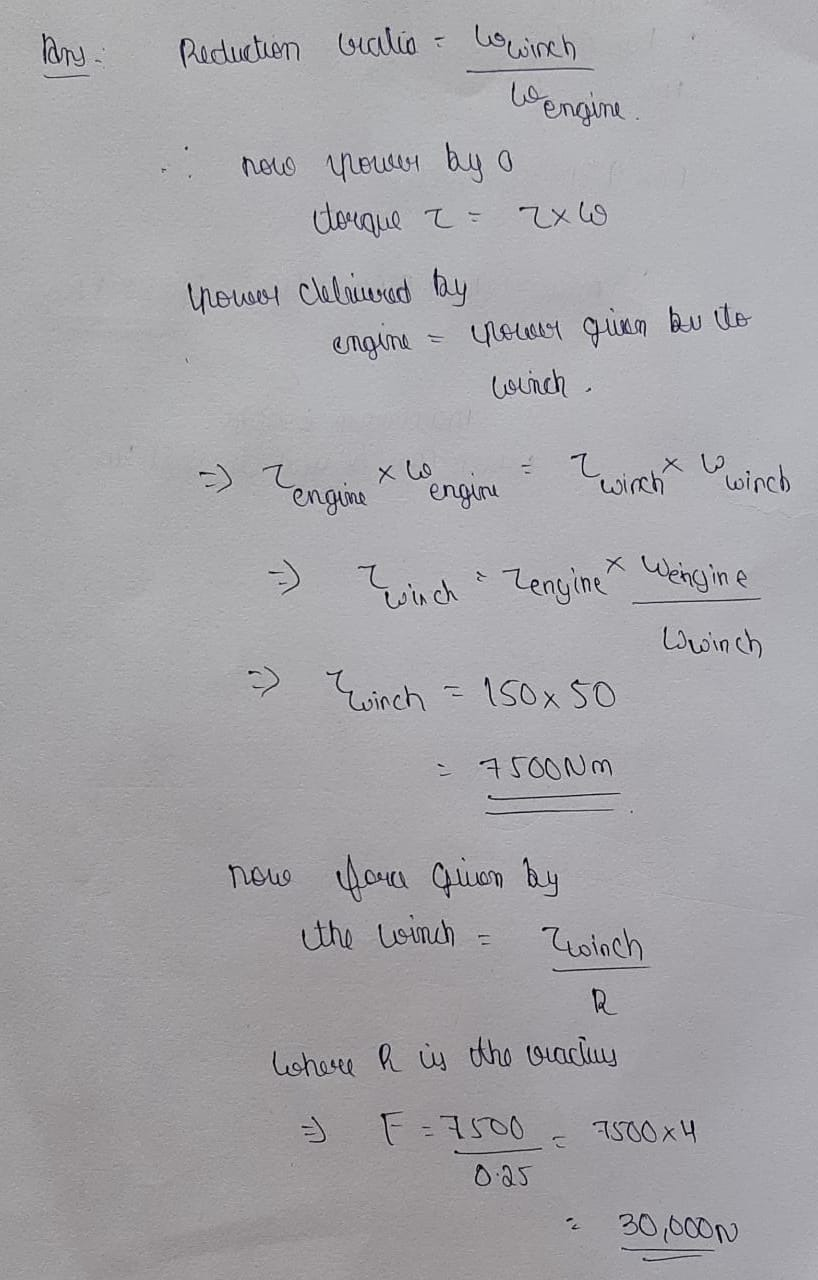 Ans: Reduction ratio = ω winch / ω engine.
∴ now power by a
torque τ = τ × ω
power delivered by
engine = power given bv to
winch.
=> τ engine × ω engine = τ winch × ω winch
=> τ winch = τ engine × ω engine / ω winch
=> τ winch = 150 × 50
= 7500 Nm
now force given by
the winch = τ winch / R
where R is the radius
=> F = 7500 / 0.25 = 7500 × 4
= 30,000 N